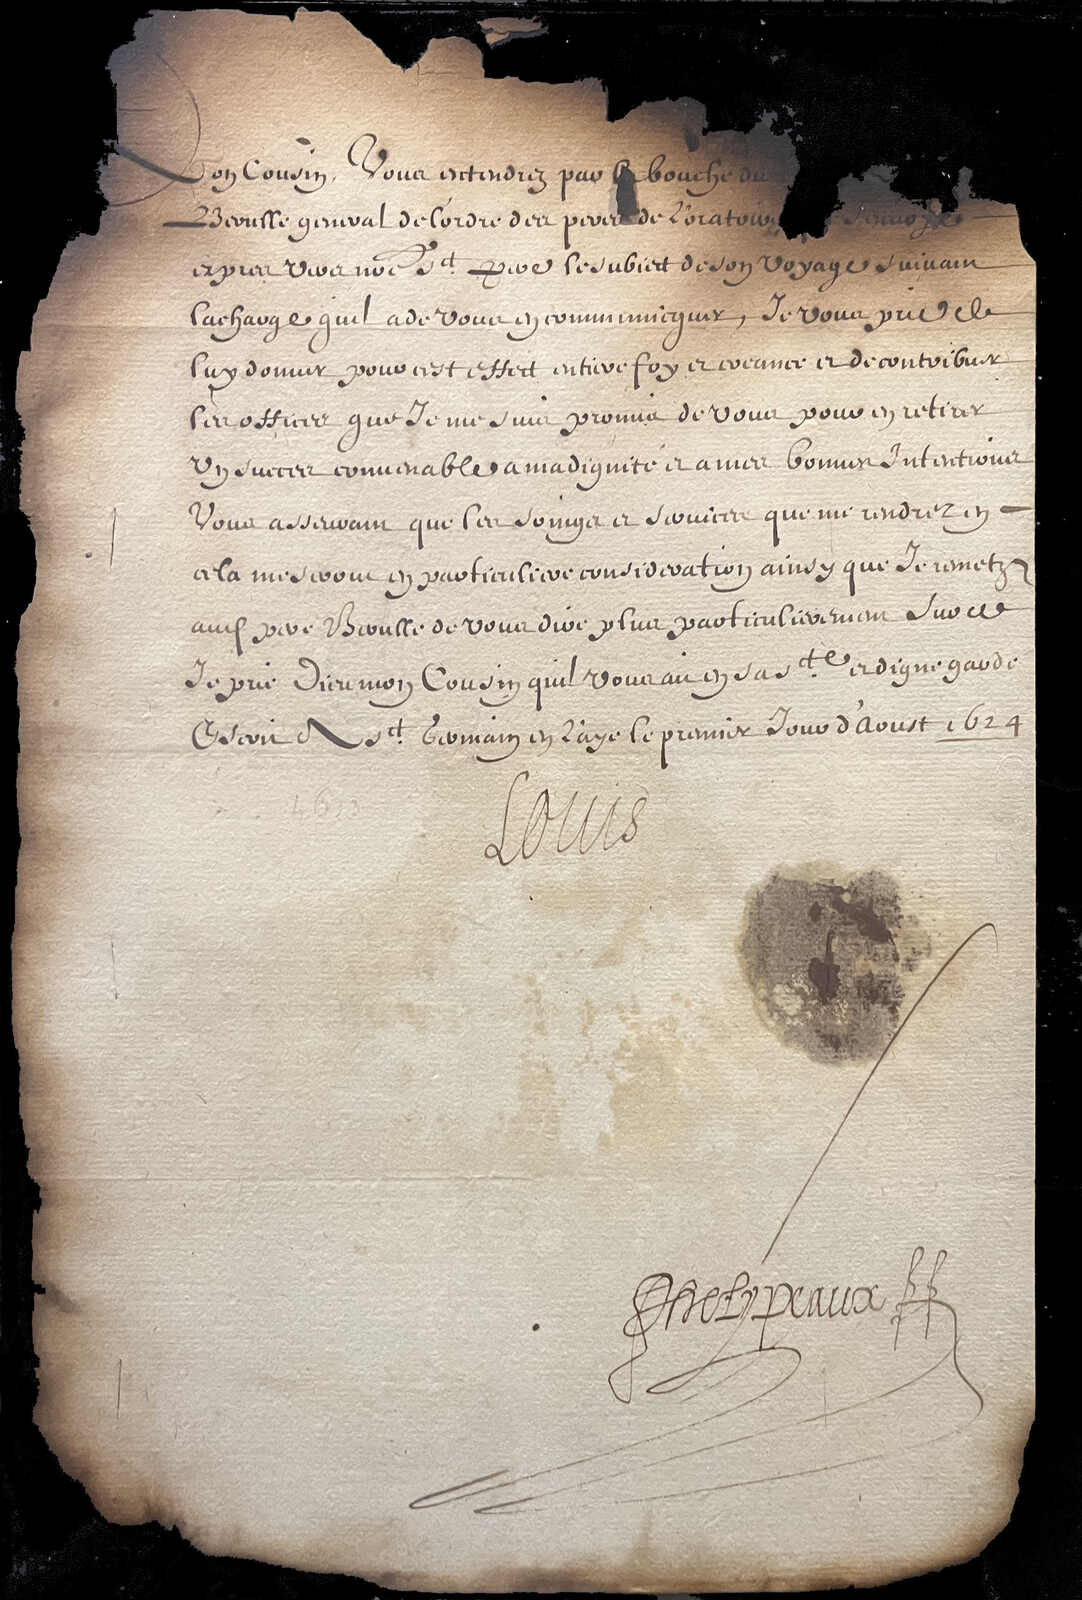 Mon Cousin, Vous entendrez par la bouche du
Berulle general de l'ordre des peres de l'oratoire
expres vers nre St. Pere le subiect de son voyage suivant
la charge quil a de vous en communicquer, Je vous prie de
luy donner pour cest effect entiere foy et creance et de contribuer
les offices que Je me suis promis de vous pour en retirer
Un succes convenable a ma dignité et a mes bonnes Intentions
Vous asseurant que les soings et services que me rendrez en
cela me seront en particuliere consideration ainsy que Je remetz
aud. pere Berulle de vous dire plus particulierement Sur ce
Je prie Dieu mon Cousin quil vous ait en sa ste. et digne garde
Escrit A St. Germain en Laye le premier Jour d'Aoust 1624
Louis
Phelypeaux